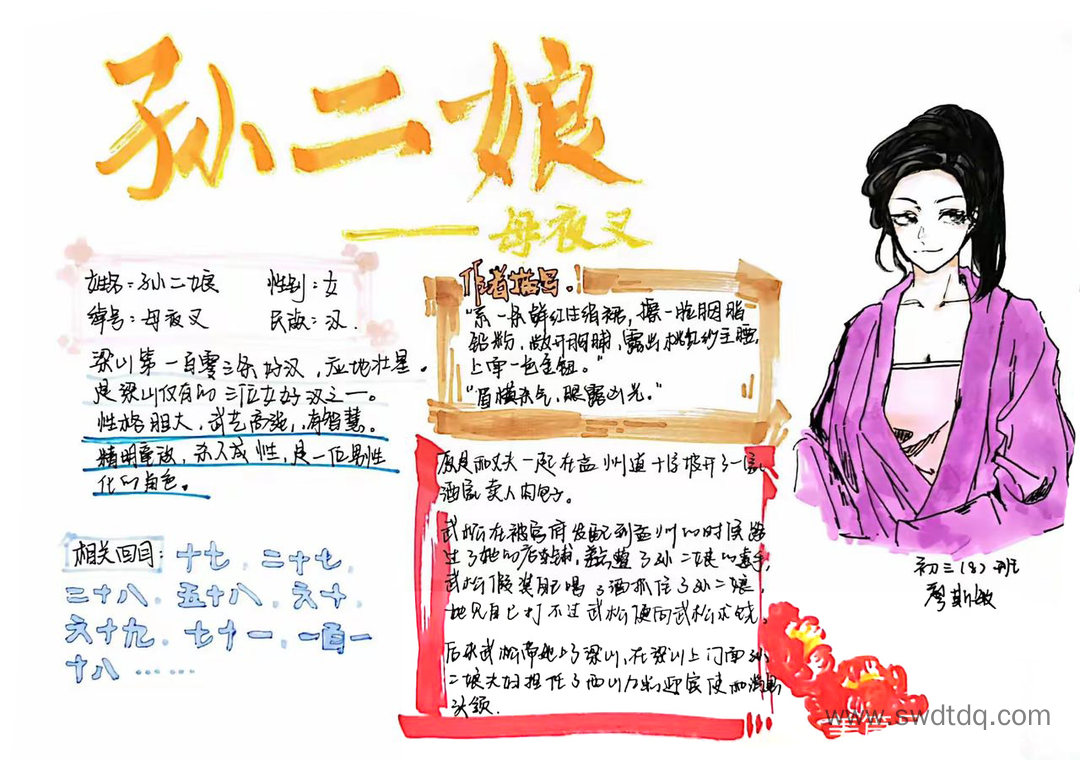 孙二娘
——母夜叉
姓名:孙二娘 性别:女
绰号:母夜叉 民族:汉.
梁山第一百零三条好汉,应地壮星.
是梁山仅有的三位女好汉之一。
性格胆大,武艺高强,有智慧。
精明童叟,杀人成性,是一位男性
化的角色。
相关回目:十七,二十七,
二十八,五十八,六十,
六十九,七十一,一百一
十八……
作者描写.
"系一条鲜红生绢裙,搽一脸胭脂
铅粉,敞开胸脯,露出桃红纱主腰,
上面一色金钮。"
"眉横杀气,眼露凶光。"
原是和丈夫一起在孟州道十字坡开了一家
酒店卖人肉包子。
武松在被官府发配到孟州的时候路
过了她的店铺,了孙二娘的毒手,
武松假装肥喝了酒抓住了孙二娘,
她见自己打不过武松便向武松求饶。
后来武松带她上了梁山,在梁山上门面孙
二娘夫妇担任了西山酒店迎宾使和消息
头领.
初三(8)班
廖斯敏
www.swdtdq.com